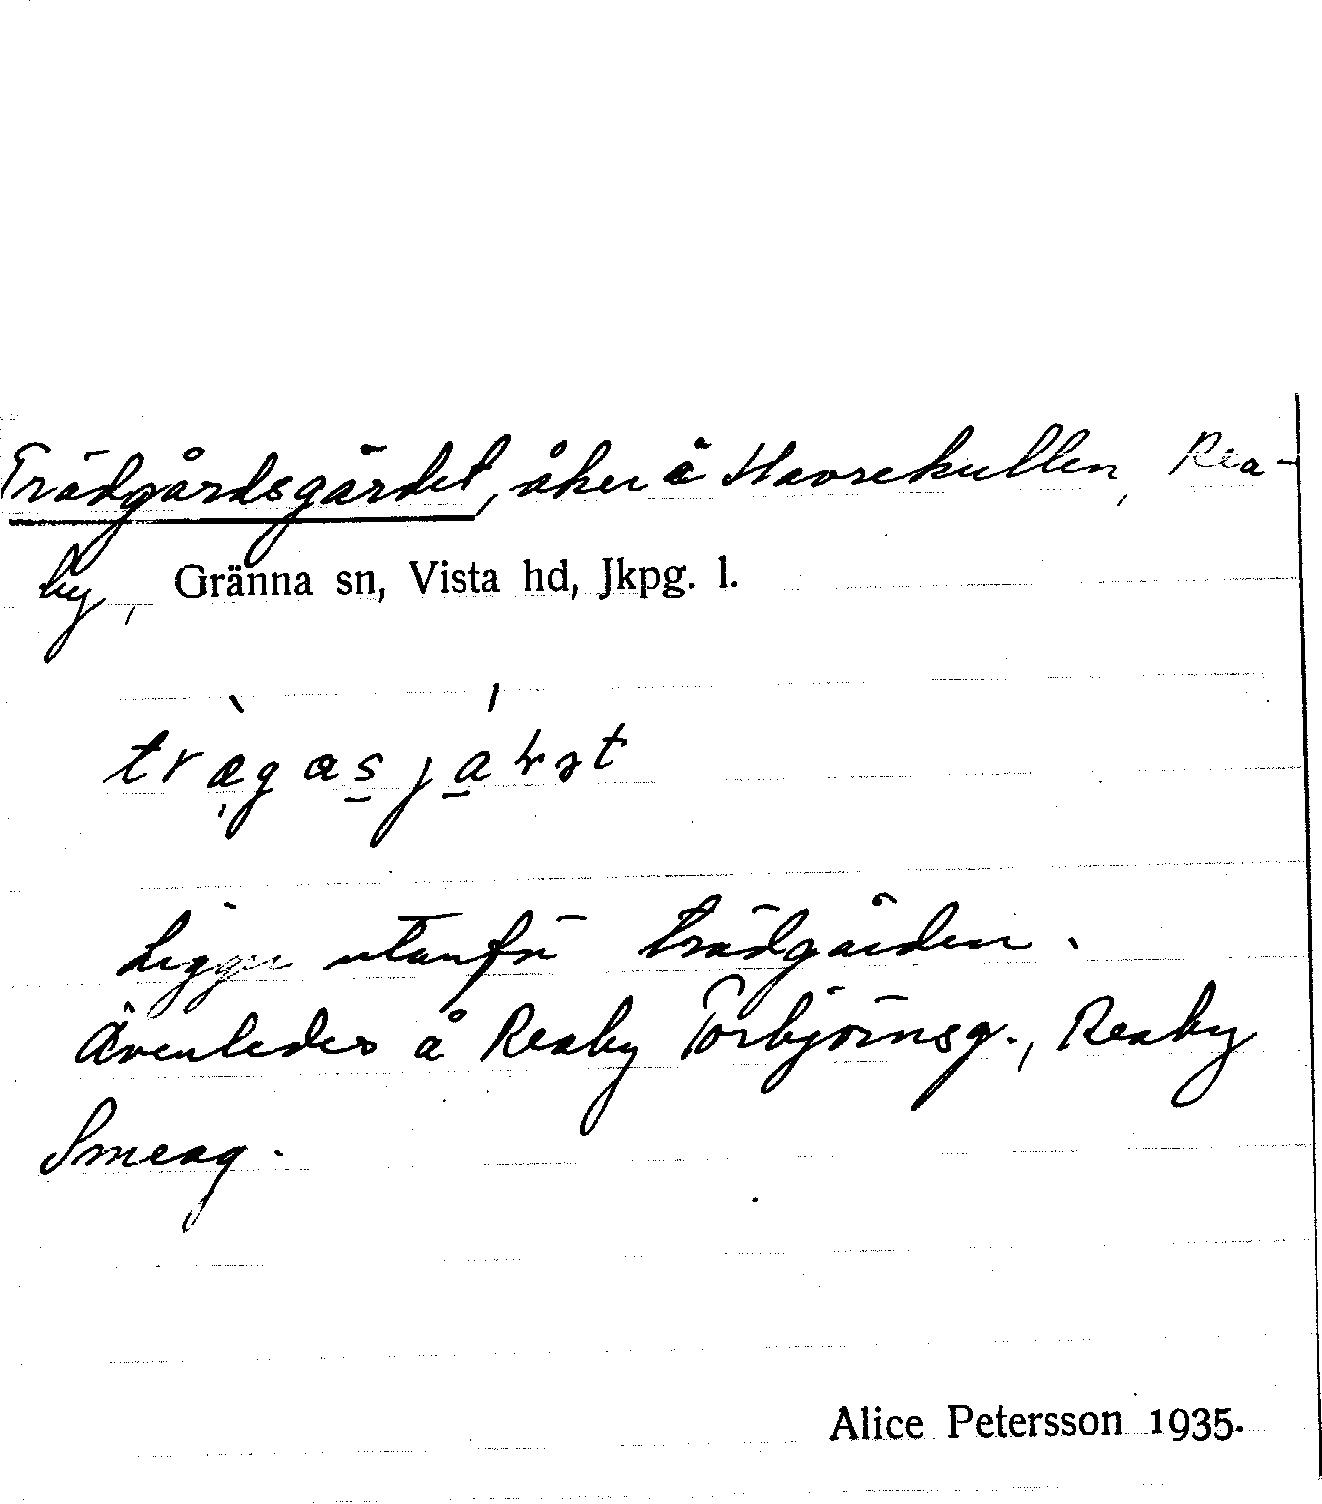 Trädgårdsgärdet, åker å Havrekullen, Rea-
by, Gränna sn, Vista hd, Jkpg. l.
Ligger utanför trädgården.
Ävenledes å Reaby Torbjörnsg., Reaby
Smeag.
Alice Petersson 1935.